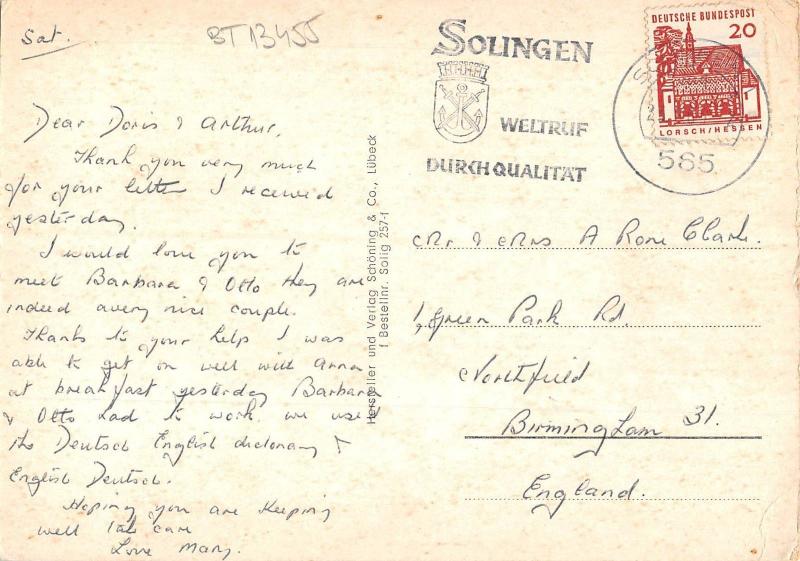 Sat.
BT13455
SOLINGEN
WELTRUF
DURCH QUALITÄT
DEUTSCHE BUNDESPOST
20
LORSCH/HESSEN
565
Dear Doris & Arthur,
Thank you very much
for your letter I received
yesterday.
I would love you to
meet Barbara & Otto they are
indeed a very nice couple.
Thanks to your help I was
able to get on well with Anna
at breakfast yesterday Barbara
& Otto had to work. we used
the Deutsch English dictionary &
English Deutsch.
Hoping you are keeping
well take care
Love Mary.
Hersteller und Verlag Schöning & Co., Lübeck
f Bestellnr. Solig 257-f
Mr & Mrs A Rose Clark.
1, Green Park Rd.
Northfield
Birmingham 31.
England.